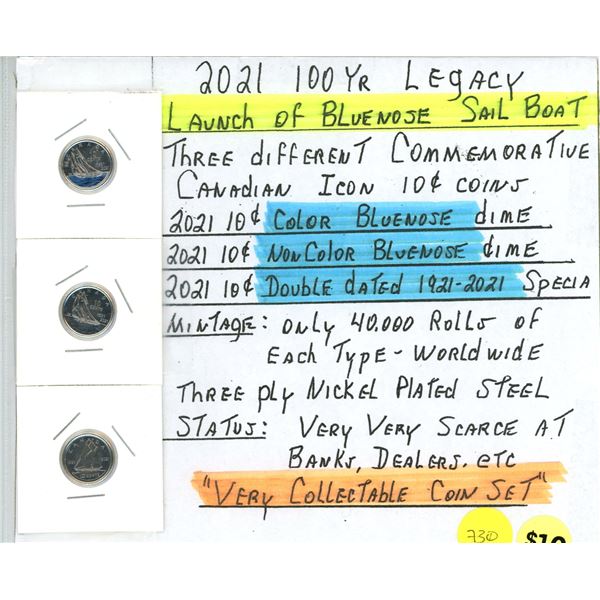 2021 100 YR LEGACY
LAUNCH OF BLUENOSE SAIL BOAT
THREE DIFFERENT COMMEMORATIVE
CANADIAN ICON 10¢ COINS
2021 10¢ COLOR BLUENOSE DIME
2021 10¢ NONCOLOR BLUENOSE DIME
2021 10¢ DOUBLE DATED 1921-2021 SPECIA
MINTAGE: ONLY 40.000 ROLLS OF
EACH TYPE - WORLDWIDE
THREE PLY NICKEL PLATED STEEL
STATUS: VERY VERY SCARCE AT
BANKS, DEALERS, ETC
"VERY COLLECTABLE COIN SET"
730